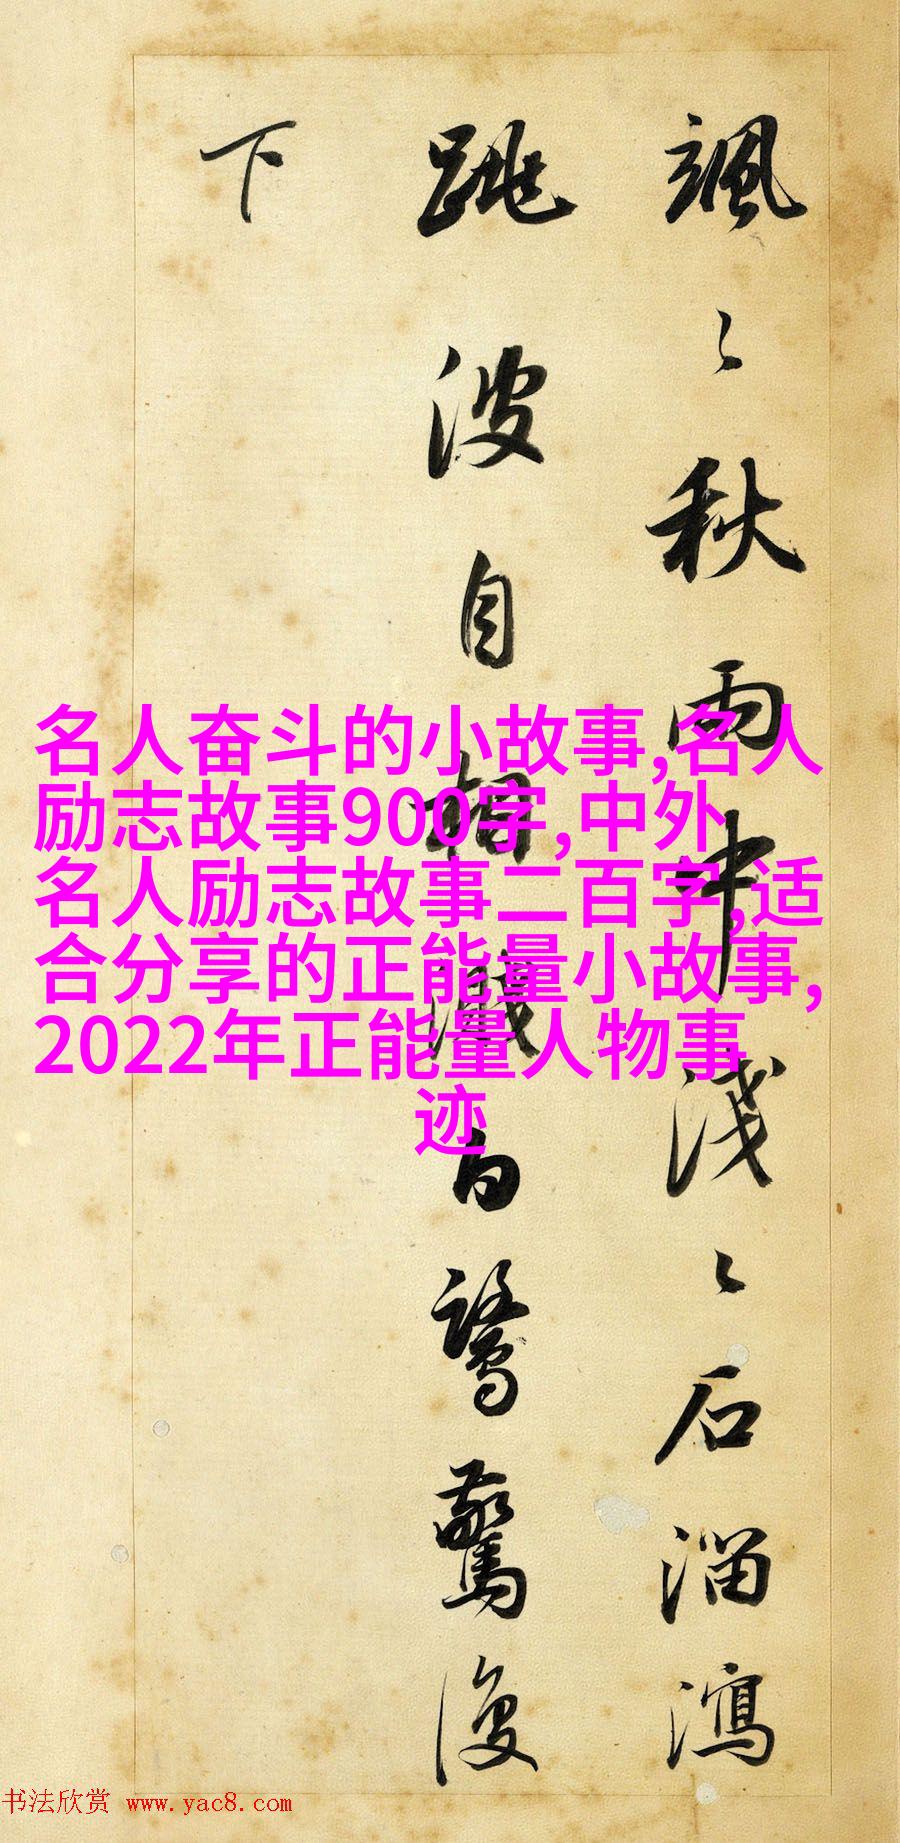 飒〻秋雨中浅〻石溜泻
跳波自相溅白鹭惊复
下
名人奋斗的小故事,名人
励志故事900字,中外
名人励志故事二百字,适
合分享的正能量小故事,
2022年正能量人物事
迹
书法欣赏 www.yac8.com